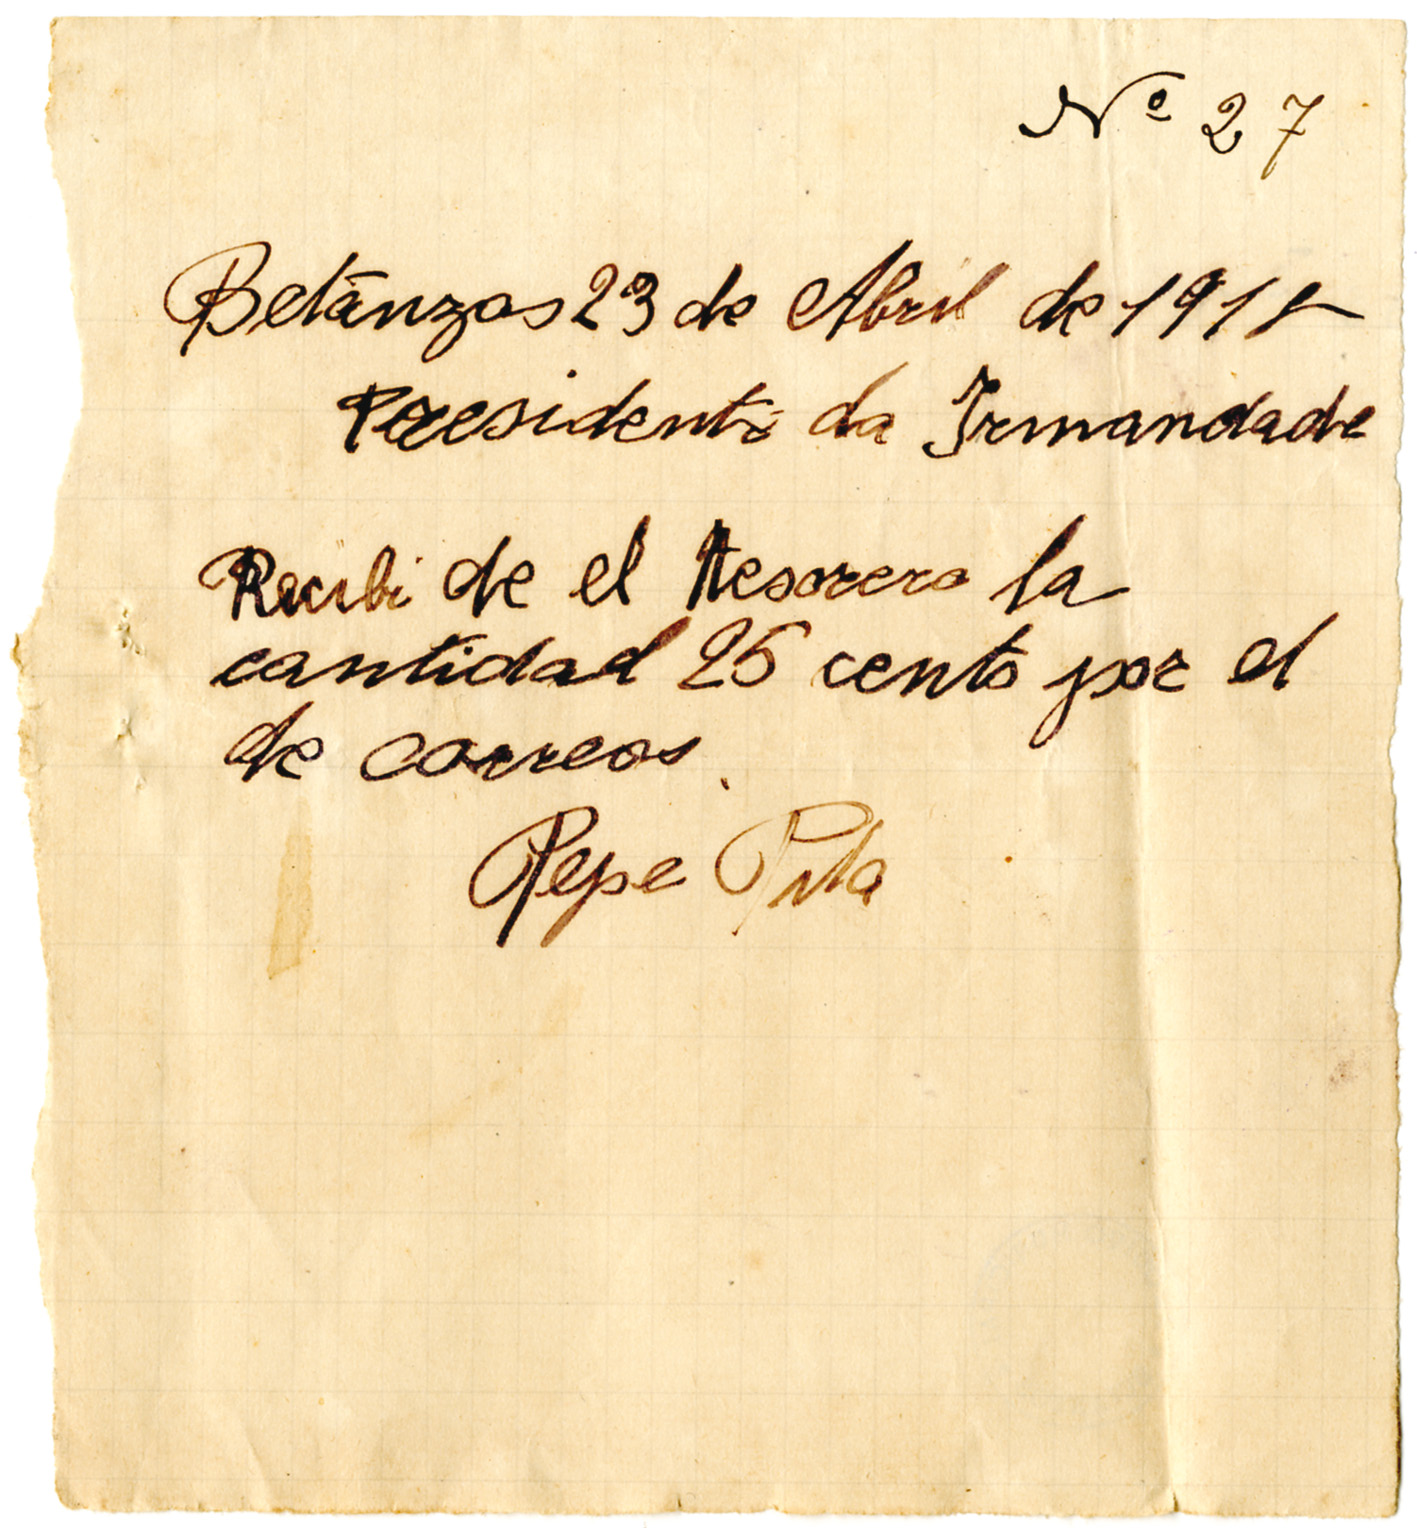 Nº 27
Betánzos 23 de Abril de 1918
Presidente da Irmandade
Recibi de el tesorero la
cantidad 25 cents por el
de correos.
Pepe Pita